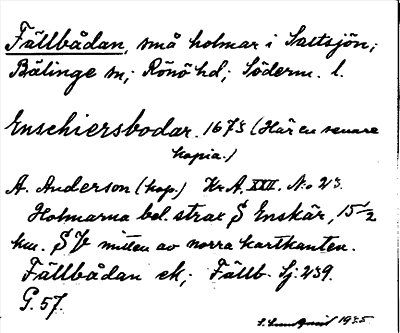 Fällbådan, små holmar i Saltsjön;
Bälinge sn; Rönö hd; Söderm. l.
Enschiersbodar. 1675 (Här en senare
kopia.)
A. Anderson (kop.) Kr A. XXII. No 23.
Holmarna bel. strax S Enskär, 15 1/2
km. SV mitten av norra kartkanten.
Fällbådan ek; Fällb. Sj. 239.
G. 57.
S. Lundqvist 1935